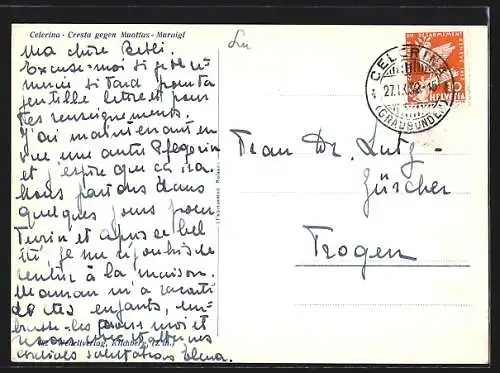 Celerina - Cresta gegen Muottas - Maraigl
Ma chère Betli.
Excuse-moi si je te re-
mercie si tard pour ta
gentille lettre et pour
tes renseignements.
J'ai maintenant en
vue une autre Pflegerin
et j'espère que ça ira.
Nous partons dans
quelques jours pour
Turin et après ce bel
été, je me réjouis de
rentrer à la maison.
Maman m'a raconté
de tes enfants, em-
brasse-les pour moi et
cordiales salutations Elena.
Verlag, Kilchberg (Zch.)
CELERINA
(GRAUBÜNDEN)
27.I
HELVETIA
10
Frau Dr. Lutz-
Zürcher
Trogen